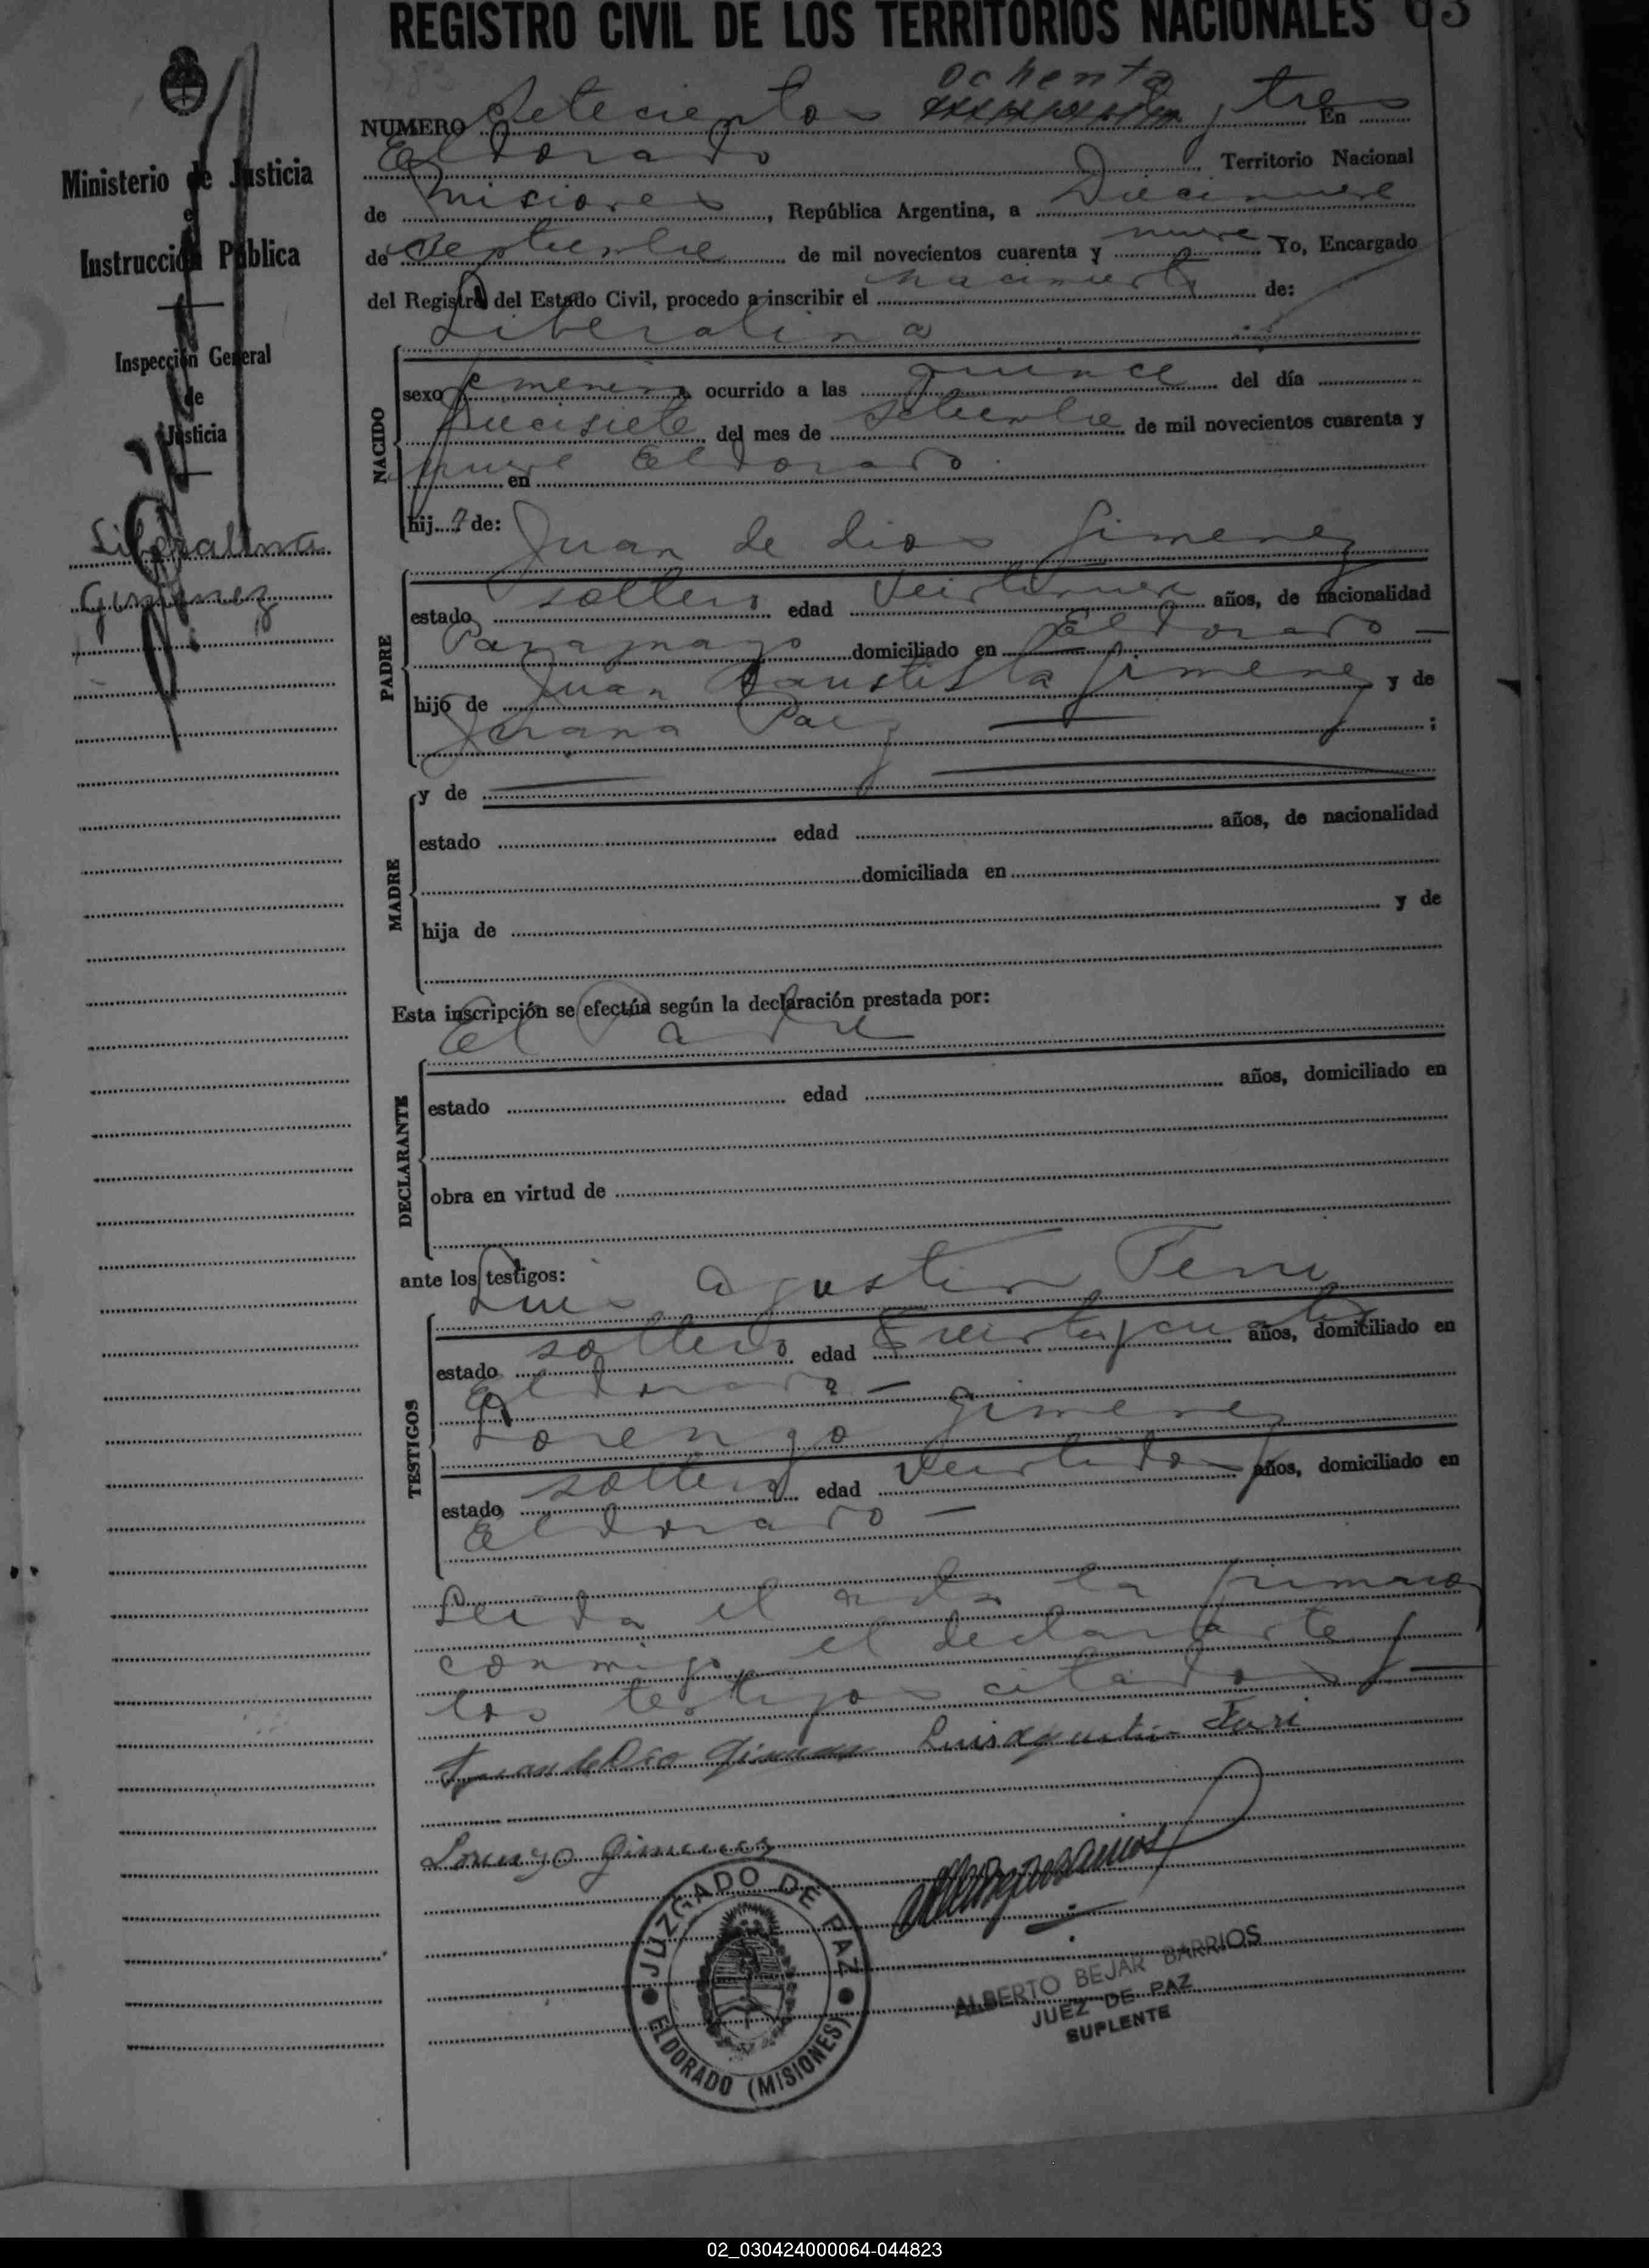 REGISTRO CIVIL DE LOS TERRITORIOS NACIONALES 63
783
ochenta
NUMERO Setecientos y tres En
Eldorado Territorio Nacional
de Misiones, República Argentina, a Diecinueve
de Septiembre de mil novecientos cuarenta y nueve Yo, Encargado
del Registro del Estado Civil, procedo a inscribir el nacimiento de:
Liberalina
NACIDO
sexo femenino ocurrido a las quince del día
Diecisiete del mes de Setiembre de mil novecientos cuarenta y
nueve en Eldorado
hija de: Juan de dios Gimenez
PADRE
estado soltero edad Veintinueve años, de nacionalidad
Paraguayo domiciliado en Eldorado —
hijo de Juan Bautista Gimenez y de
Juana Paez ;
MADRE
y de
estado edad años, de nacionalidad
domiciliada en
hija de y de
Esta inscripción se efectúa según la declaración prestada por:
El Padre
DECLARANTE
estado edad años, domiciliado en
obra en virtud de
ante los testigos: Luis Agustin
TESTIGOS
estado soltero edad Treinta y cuatro años, domiciliado en
Eldorado —
Lorenzo Gimenez
estado soltero edad Veintidos años, domiciliado en
Eldorado —
Leida el acta la firmaron
conmigo, el declarante y
los testigos citados —
Juan de Dio Gimenez Luis Agustin
Lorenzo Gimenez
JUZGADO DE PAZ
ELDORADO (MISIONES)
ALBERTO BEJAR BARRIOS
JUEZ DE PAZ
SUPLENTE
Ministerio de Justicia
e
Instrucción Pública
Inspección General
de
Justicia
Liberalina
Gimenez
02_030424000064-044823